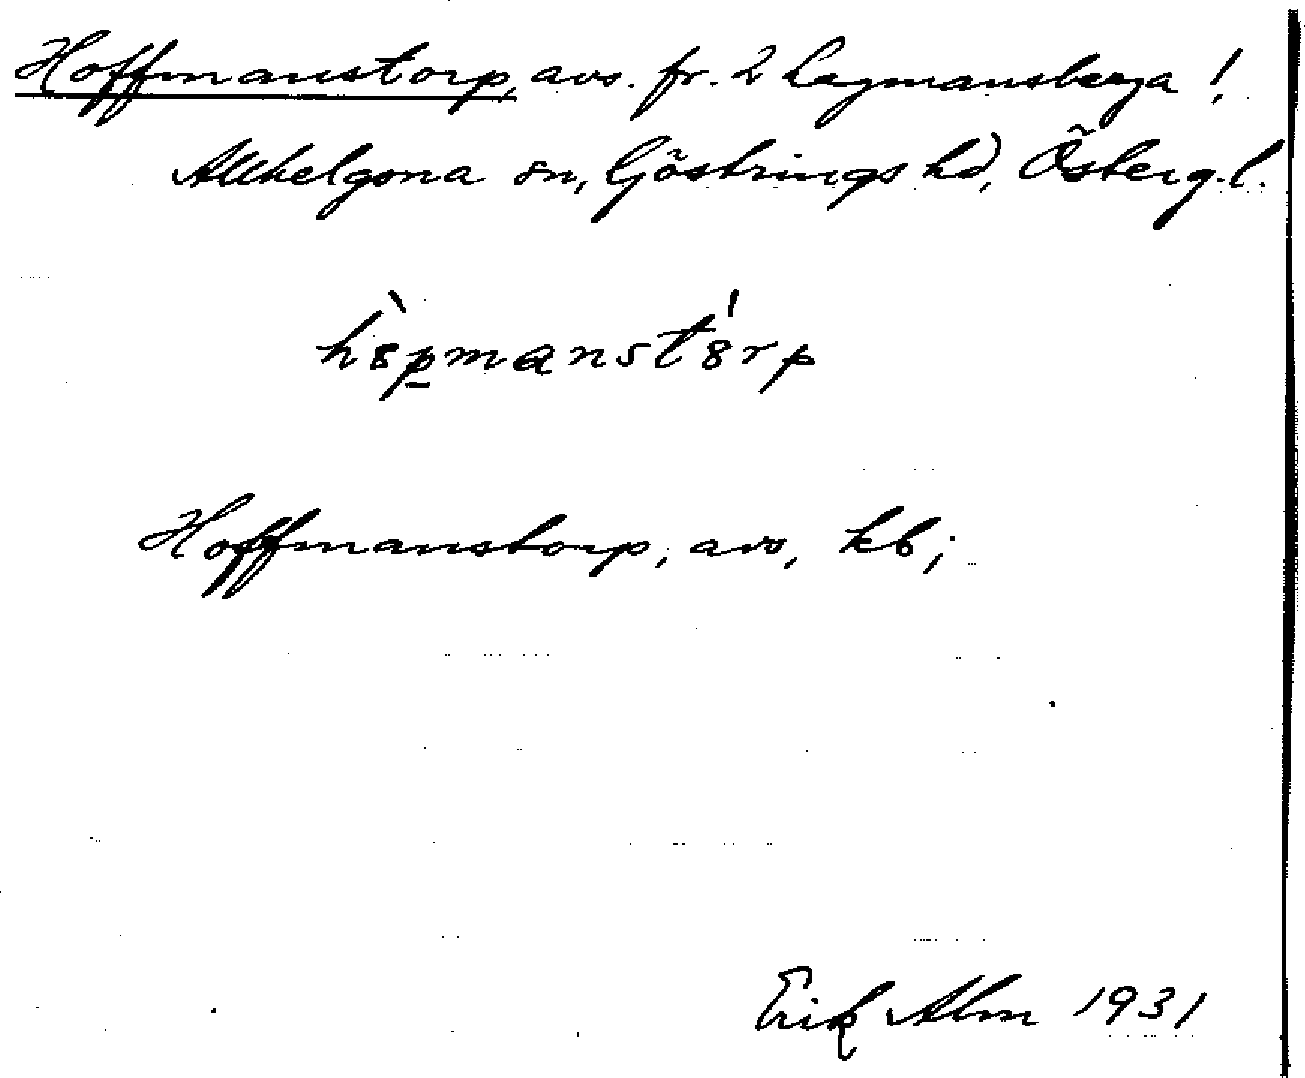 Hoffmanstorp, avs. fr. 2 Lagmansberga !
Allhelgona sn, Göstrings hd, Östergl.
h8̀pmanst8́rp
Hoffmanstorp, avs, kb;
Erik Alm 1931